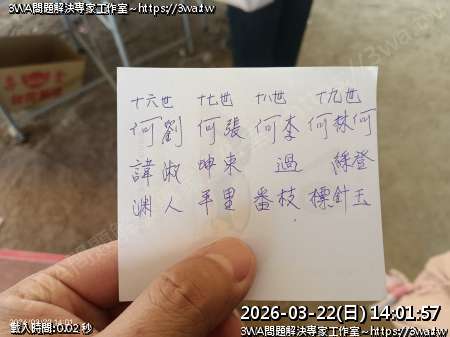 3WA問題解決專家工作室~https://3wa.tw
十六世 十七世 十八世 十九世
何劉 何張 何李 何林何
諱淑 坤東 過 綠登
渊人 羊里 番枝 標針玉
2026-03-22(日) 14:01:57
載入時間:0.02 秒
3WA問題解決專家工作室~https://3wa.tw